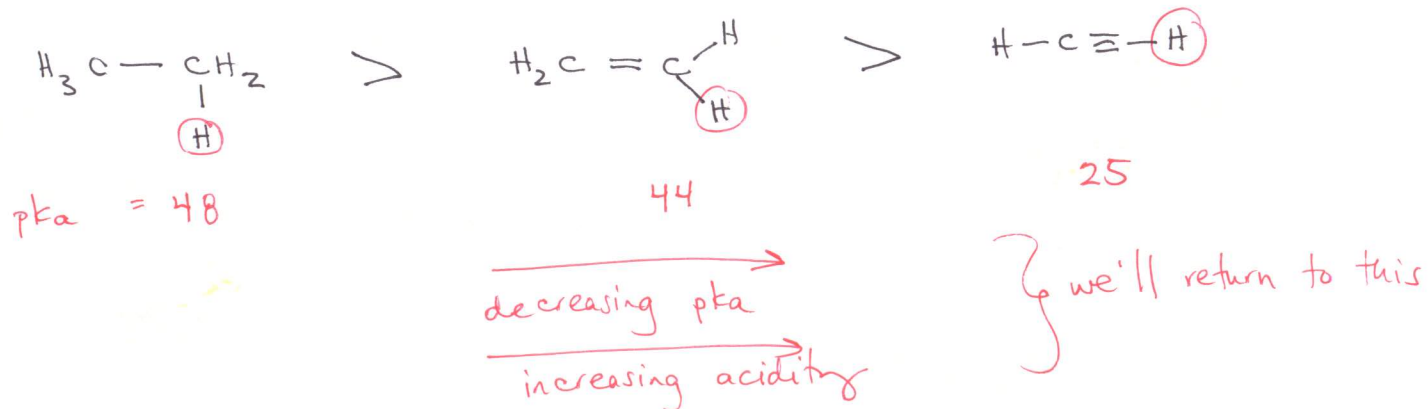 H₃C — CH₂ > H₂C = C H > H — C ≡ — H
H H
pka = 48 44 25
decreasing pka
increasing acidity
} we'll return to this